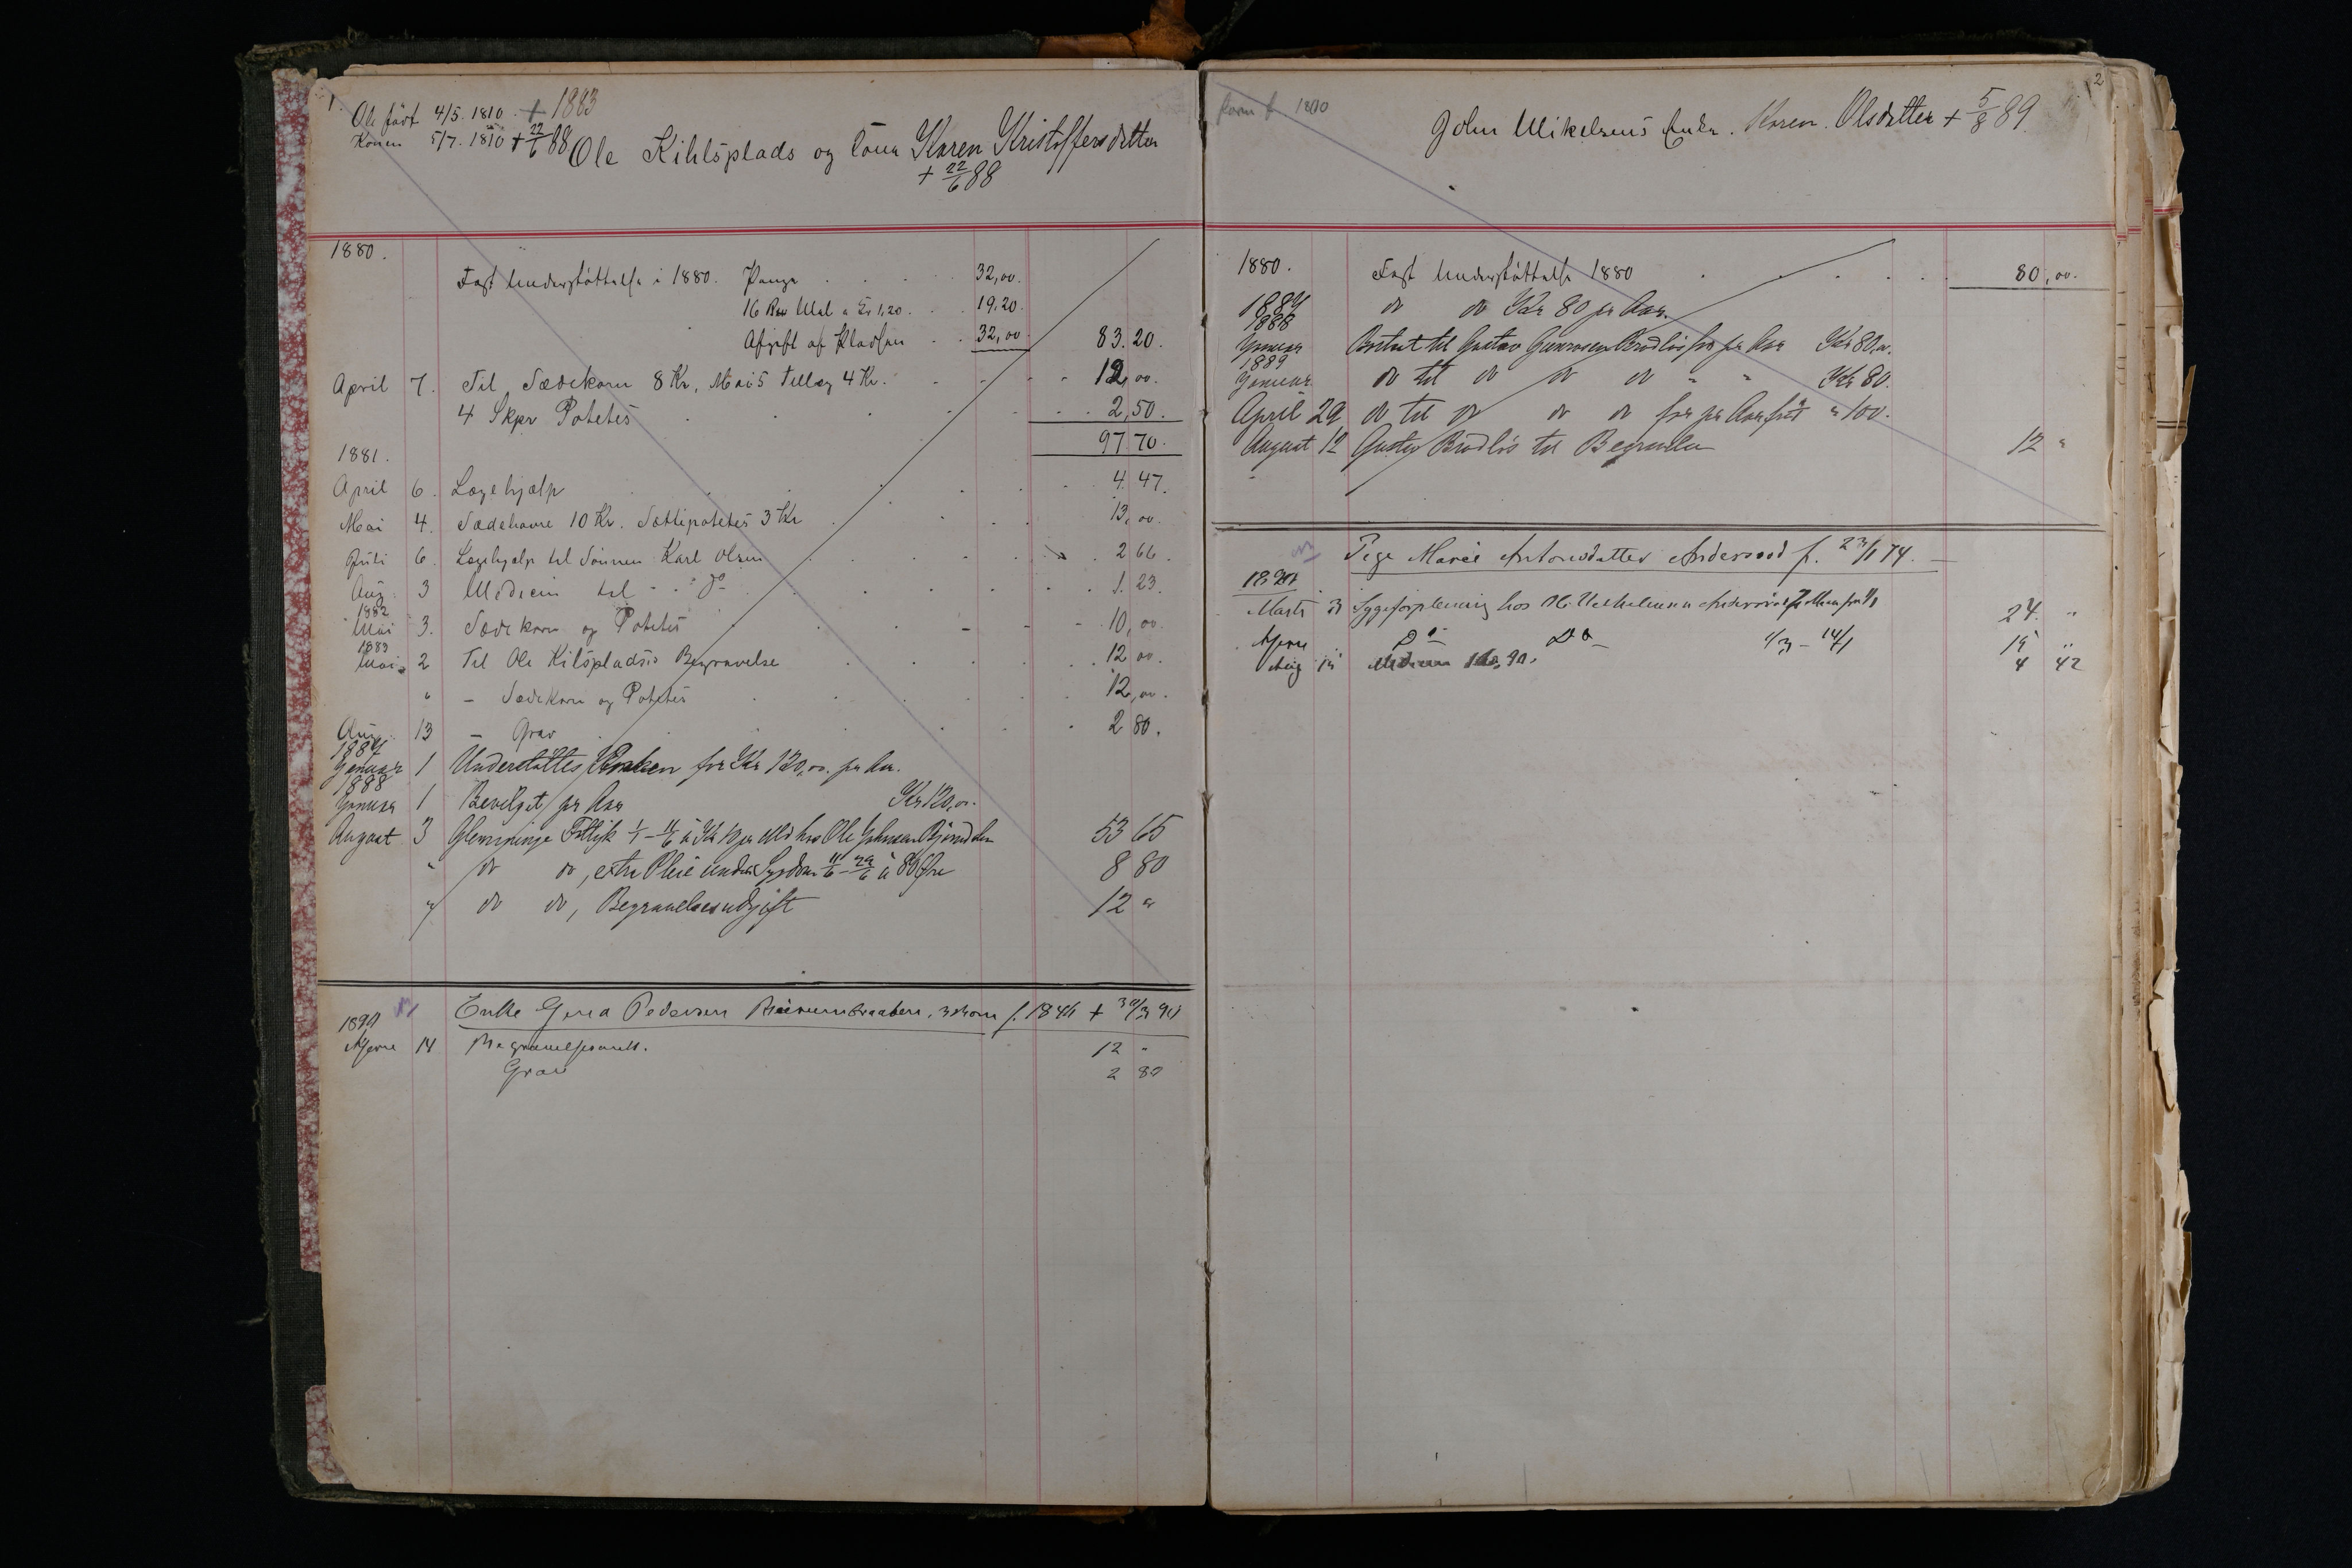 1.
Ole født 4/5. 1810. + 1883
Konen 5/7. 1810 + 22/6 88
Ole Kihlsplads og Kone Karen Kristoffersdatter
+ 22/6 88
1880.
Fast Understøttelse i 1880. Penge 32,00.
16 Mal a Kr 1,20. 19,20.
Afgift af Pladsen 32,00 83.20.
April 7. Til Sædekorn 8 Kr, Mai 5 Tillæg 4 Kr. 12,00.
4 Skpr Potetes 2,50.
97.70.
1881.
April 6. Lægehjælp 4.47.
Mai 4. Sædehavre 10 Kr. Sættepotetes 3 Kr 13,00.
Juli 6. Lægehjælp til Sønnen Karl Olsen 2 66.
Aug. 3 Medicin til - " do - 1.23.
1882
Mai 3. Sædekorn og Potetes 10,00.
1883
Mai 2 Til Ole Kilspladsis Begravelse 12 00.
" - Sædekorn og Potetes 12,00.
Aug. 13 - Grav 2 80.
1884
Januar 1 Understøttes Enken for Kr 120,00. pr Aar.
1888
Januar 1 Bevilget pr Aar Kr 120,00.
August 3 Ole Johnsen 53 65
" do do, extra Pleie under Sygdom 11/6 - 22/6 à 80 Øre 8 80
" do do, Begravelsesudgift 12 "
Enke Pedersen f. 1846 + 30/3 90
1890
14 12 "
Grav 2 80
2
1810
John Mikelsens Enke. Karen Olsdatter + 5/8 89.
1880. Fast Understøttelse 1880 80,00.
1884 do do Kr 80 pr Aar.
1888
Januar Bortsat til Gustav Gunnersen Brødløs for pr Aar Kr 80,00.
1889
Januar do til do do do " " Kr 80.
April 29 do til do do do for pr Aar " 100.
August 12 Gustav Brødløs til Begravelse 12 "
Pige Marie Antonsdatter f. 23/1 74.
1890
Marts 3 Sygeforpleining hos 24. "
Do Do 1/3 - 14/1 15 "
Aug 15 Medicin 4 42